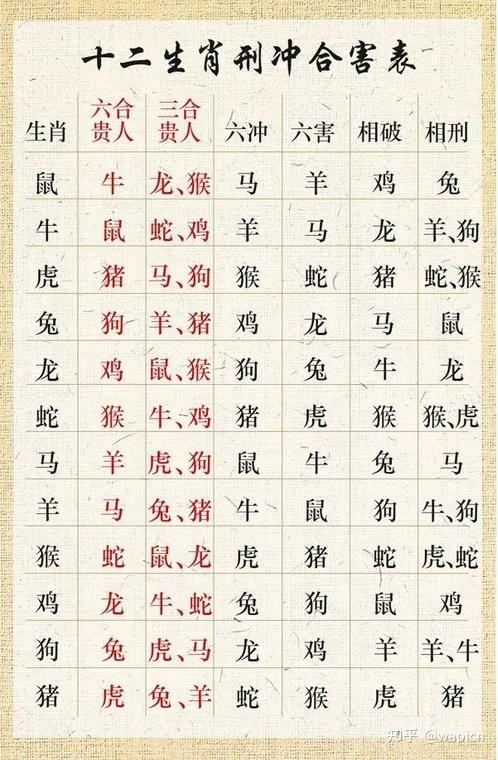 十二生肖刑冲合害表
生肖 六合贵人 三合贵人 六冲 六害 相破 相刑
鼠 牛 龙、猴 马 羊 鸡 兔
牛 鼠 蛇、鸡 羊 马 龙 羊、狗
虎 猪 马、狗 猴 蛇 猪 蛇、猴
兔 狗 羊、猪 鸡 龙 马 鼠
龙 鸡 鼠、猴 狗 兔 牛 龙
蛇 猴 牛、鸡 猪 虎 猴 猴、虎
马 羊 虎、狗 鼠 牛 兔 马
羊 马 兔、猪 牛 鼠 狗 牛、狗
猴 蛇 鼠、龙 虎 猪 蛇 虎、蛇
鸡 龙 牛、蛇 兔 狗 鼠 鸡
狗 兔 虎、马 龙 鸡 羊 羊、牛
猪 虎 兔、羊 蛇 猴 虎 猪
知乎 @wapicn